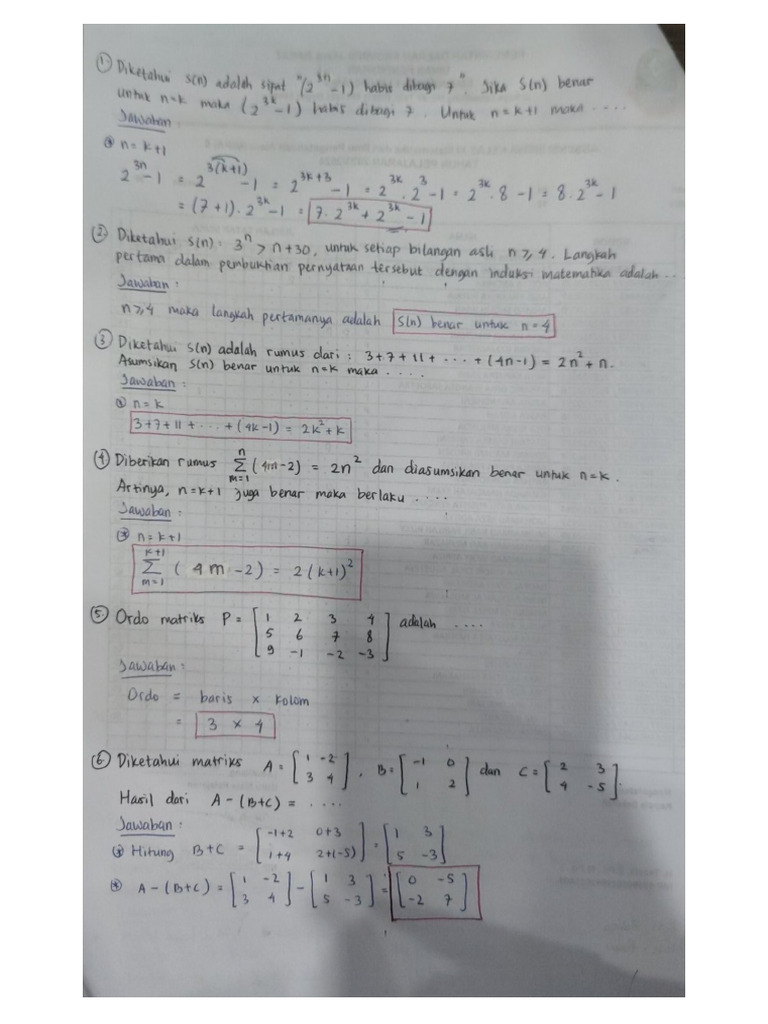 ① Diketahui S(n) adalah sifat "(2^{3n} - 1) habis dibagi 7". Jika S(n) benar
untuk n=k maka (2^{3k} - 1) habis dibagi 7. Untuk n = k+1 maka ....
Jawaban :
④ n = k+1
2^{3n} - 1 = 2^{3(k+1)} - 1 = 2^{3k+3} - 1 = 2^{3k} . 2^3 - 1 = 2^{3k} . 8 - 1 = 8 . 2^{3k} - 1
= (7+1) . 2^{3k} - 1 = 7 . 2^{3k} + 2^{3k} - 1
② Diketahui S(n) : 3^n > n+30, untuk setiap bilangan asli n ≥ 4. Langkah
pertama dalam pembuktian pernyataan tersebut dengan induksi matematika adalah ..
Jawaban :
n ≥ 4 maka langkah pertamanya adalah S(n) benar untuk n = 4
③ Diketahui S(n) adalah rumus dari : 3+7+11+ ... + (4n-1) = 2n^2 + n.
Asumsikan S(n) benar untuk n=k maka ....
Jawaban :
n = k
3+7+11+ ... + (4k-1) = 2k^2 + k
④ Diberikan rumus \sum_{m=1}^{n} (4m-2) = 2n^2 dan diasumsikan benar untuk n=k.
Artinya, n=k+1 juga benar maka berlaku ....
Jawaban :
n = k+1
\sum_{m=1}^{k+1} (4m-2) = 2(k+1)^2
⑤ Ordo matriks P = [1 2 3 4
5 6 7 8
9 -1 -2 -3] adalah ....
Jawaban :
Ordo = baris × kolom
= 3 × 4
⑥ Diketahui matriks A = [1 -2; 3 4], B = [-1 0; 1 2] dan C = [2 3; 4 -5].
Hasil dari A - (B+C) = ....
Jawaban :
Hitung B+C = [-1+2 0+3; 1+4 2+(-5)] = [1 3; 5 -3]
A - (B+C) = [1 -2; 3 4] - [1 3; 5 -3] = [0 -5; -2 7]